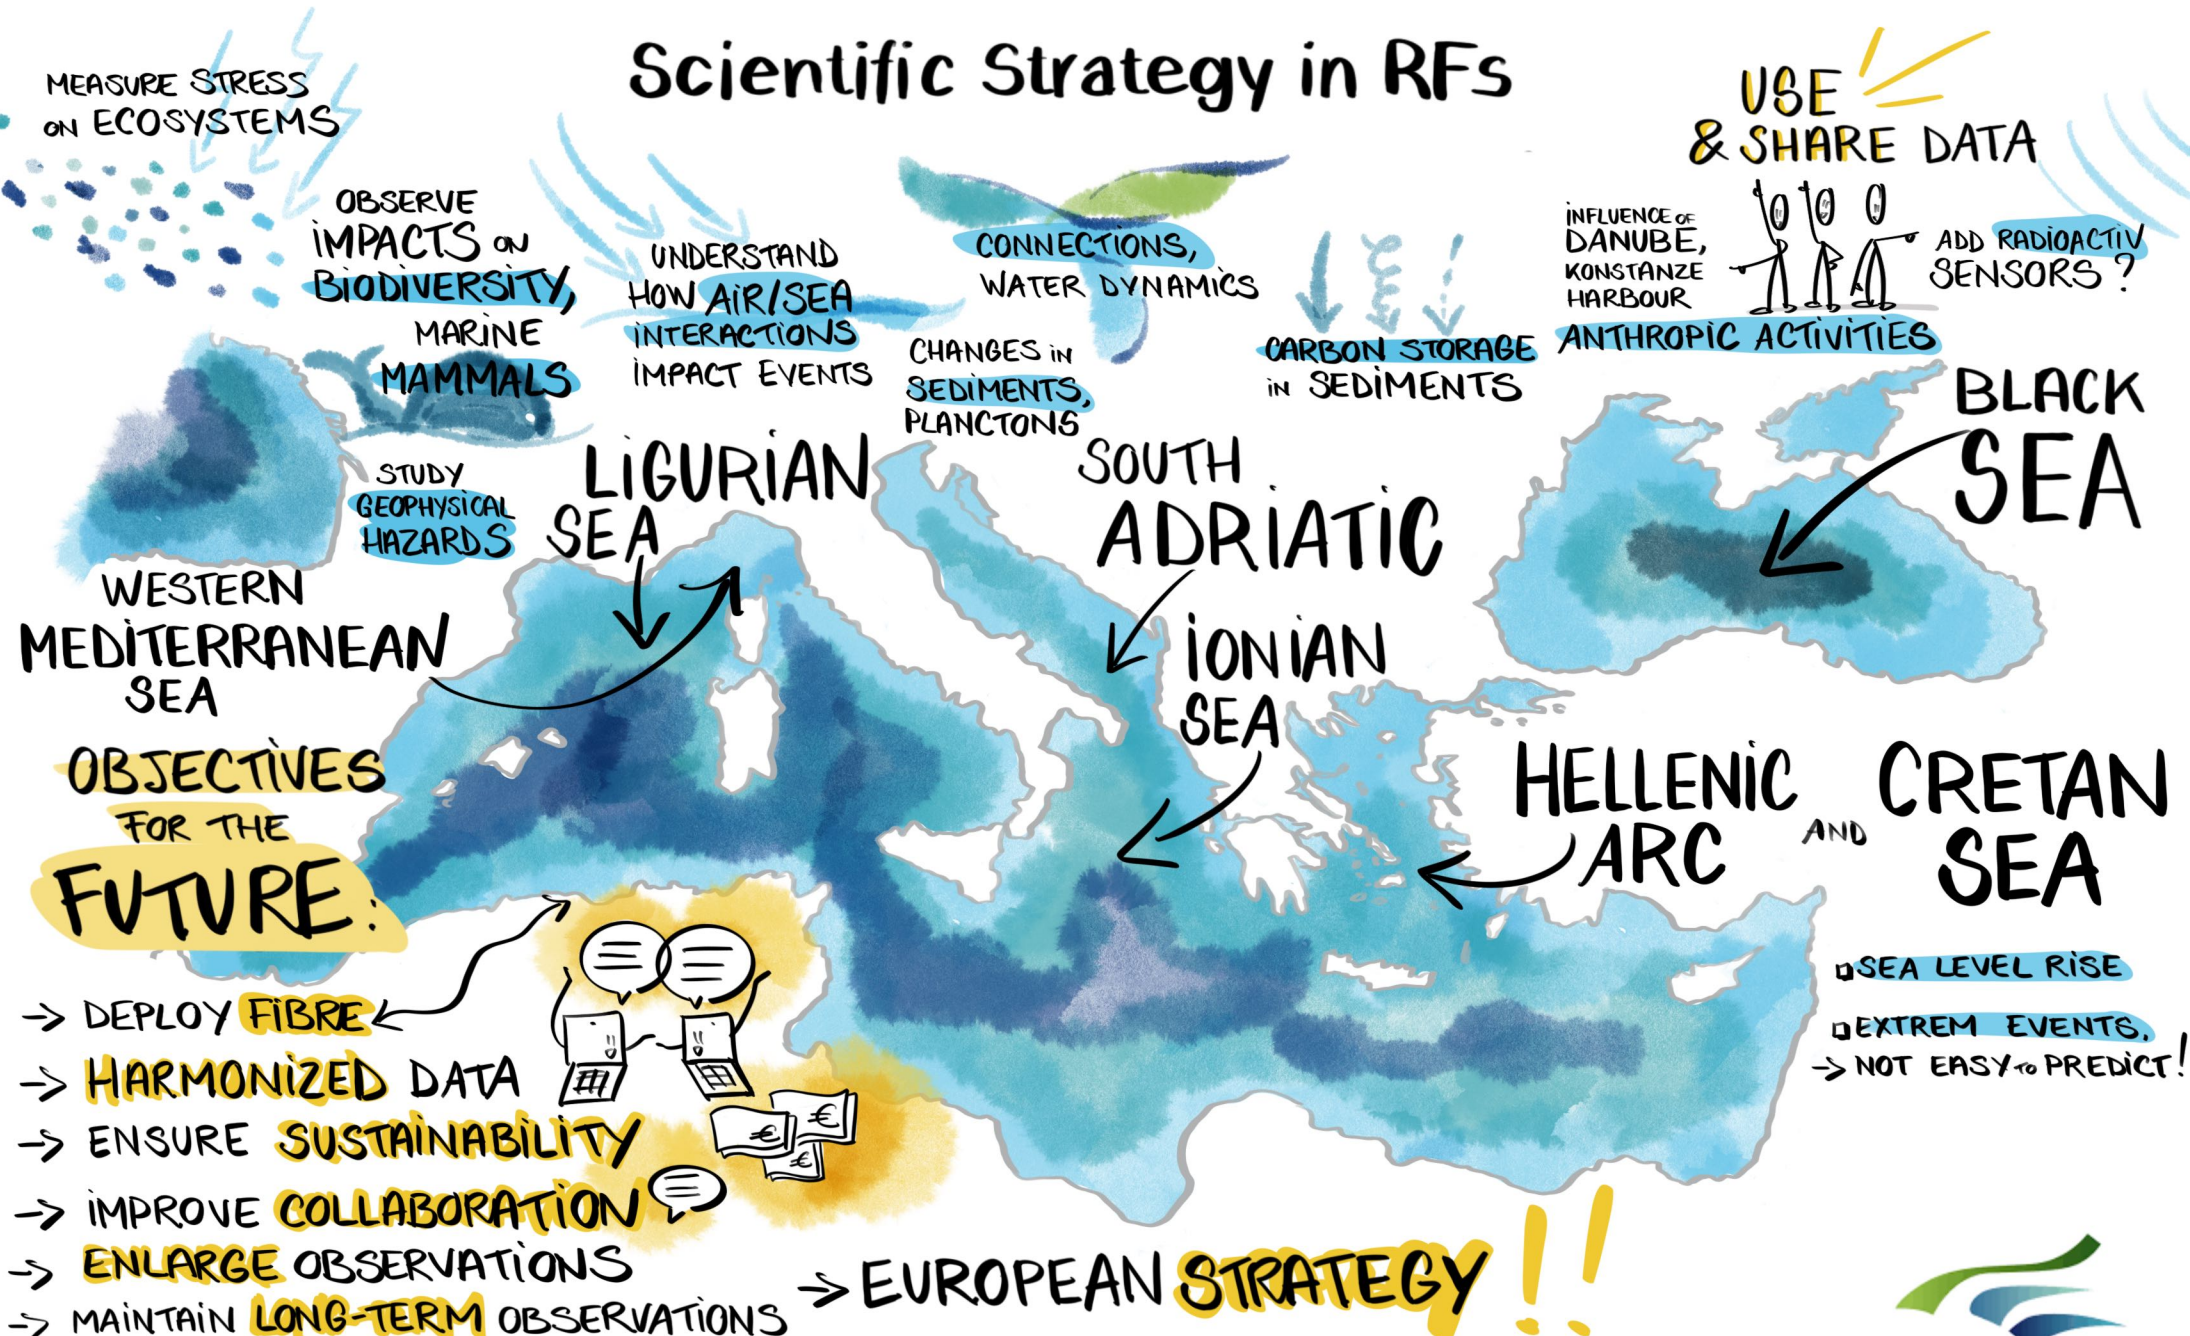 Scientific Strategy in RFs
MEASURE STRESS
ON ECOSYSTEMS
OBSERVE
IMPACTS ON
BIODIVERSITY,
MARINE
MAMMALS
UNDERSTAND
HOW AIR/SEA
INTERACTIONS
IMPACT EVENTS
CONNECTIONS,
WATER DYNAMICS
CHANGES IN
SEDIMENTS,
PLANCTONS
CARBON STORAGE
IN SEDIMENTS
USE
& SHARE DATA
INFLUENCE OF
DANUBE,
KONSTANZE
HARBOUR
ADD RADIOACTIV
SENSORS ?
ANTHROPIC ACTIVITIES
STUDY
GEOPHYSICAL
HAZARDS
LIGURIAN
SEA
SOUTH
ADRIATIC
BLACK
SEA
WESTERN
MEDITERRANEAN
SEA
IONIAN
SEA
HELLENIC
ARC
AND
CRETAN
SEA
SEA LEVEL RISE
EXTREM EVENTS,
→ NOT EASY TO PREDICT!
OBJECTIVES
FOR THE
FUTURE:
→ DEPLOY FIBRE
→ HARMONIZED DATA
→ ENSURE SUSTAINABILITY
€
€
€
→ IMPROVE COLLABORATION
→ ENLARGE OBSERVATIONS
→ MAINTAIN LONG-TERM OBSERVATIONS
→ EUROPEAN STRATEGY !!